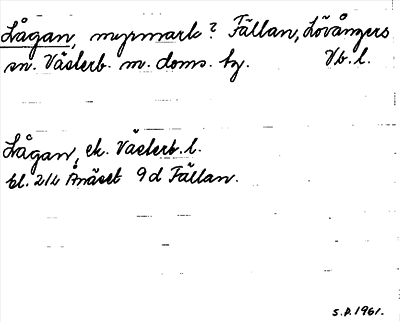 Lågan, myrmark? Fällan, Lövångers
sn. Västerb. m. doms. hg. Vb. l.
Lågan, ek. Västerb. l.
bl. 214 Ånäset 9d Fällan.
S.P. 1961.